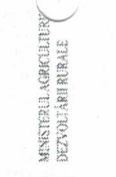 MINISTERUL AGRICULTURII
DEZVOLTĂRII RURALE